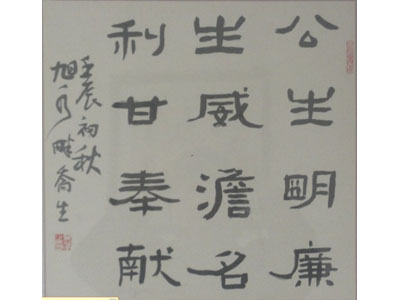 公生明廉
生威澹名
利甘奉献
壬辰初秋
旭永畔喬生